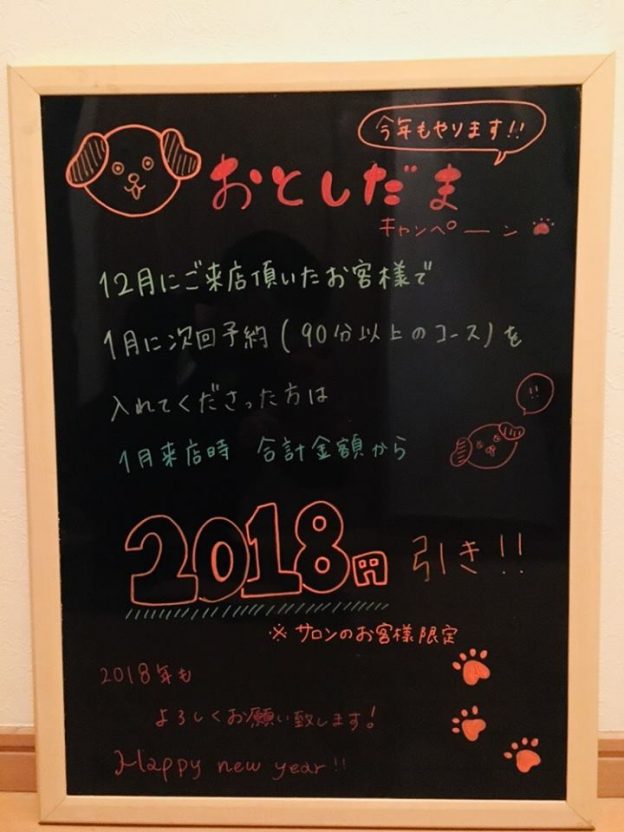 今年もやります!!
おとしだま
キャンペーン
12月にご来店頂いたお客様で
1月に次回予約(90分以上のコース)を
入れてくださった方は
!!
1月来店時 合計金額から
2018円引き!!
※サロンのお客様限定
2018年も
よろしくお願い致します!
Happy new year!!